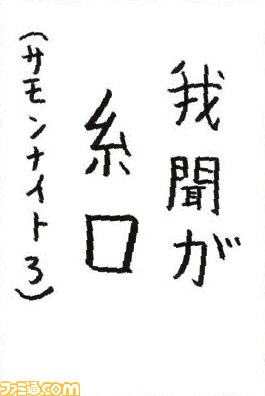 我聞が
糸口
(サモンナイト3)
ファミ通com